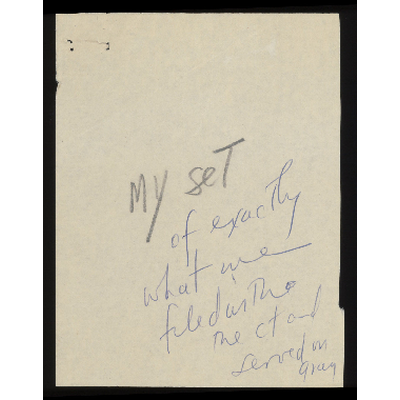 My set
of exactly
what we
filed in the
the ct and
served on
Gray